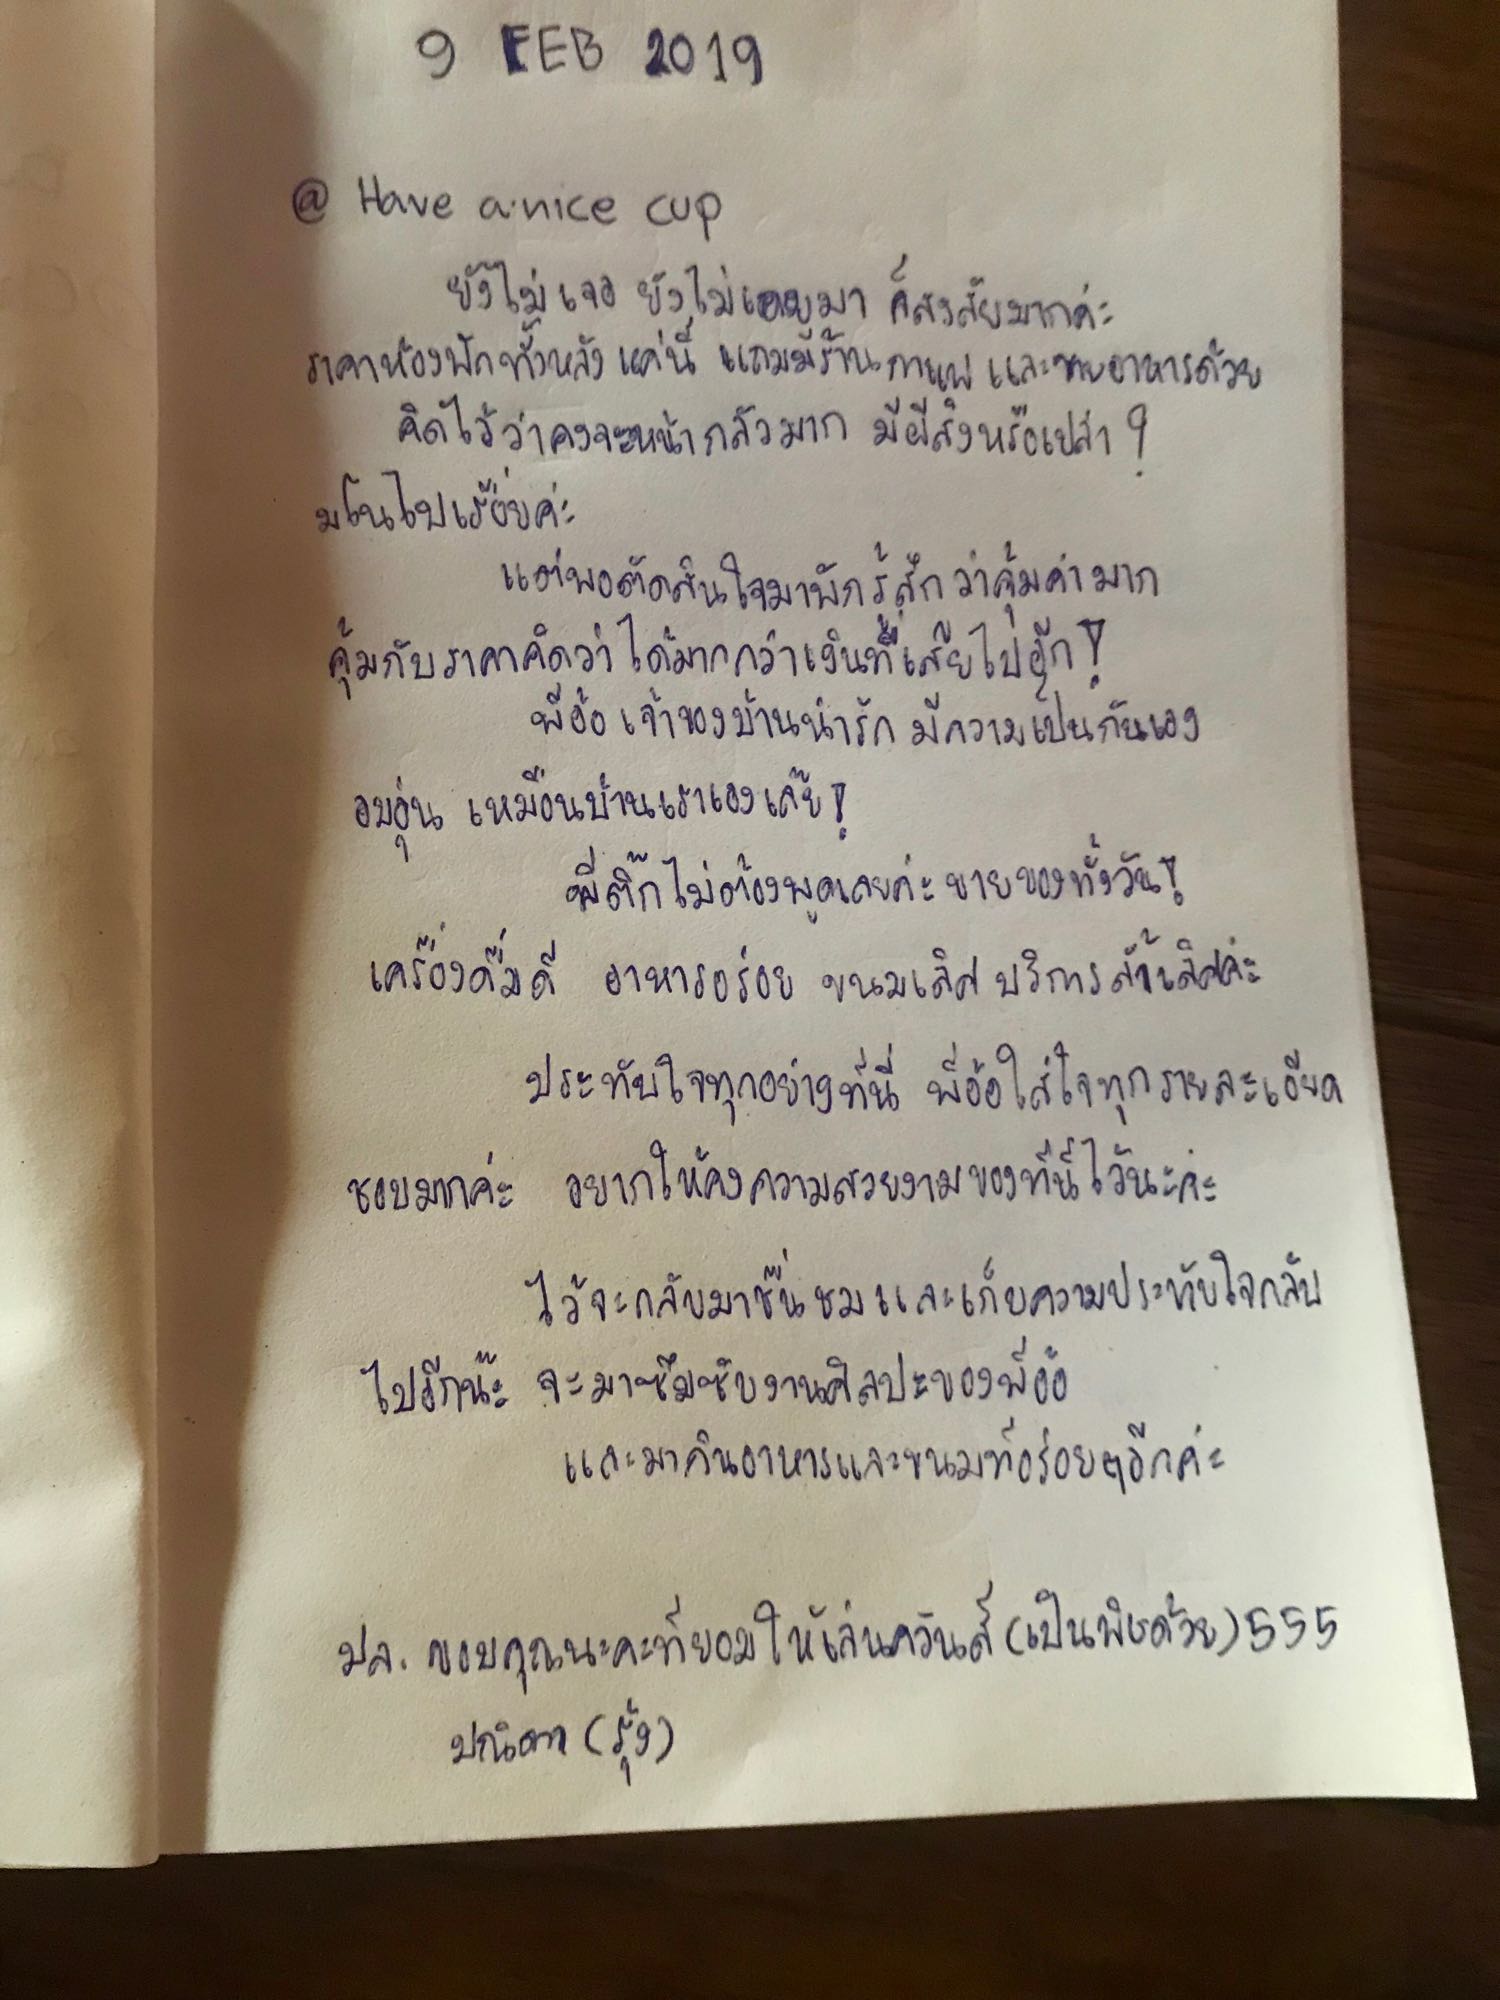 9 FEB 2019
@ Have a nice cup
ยังไม่เจอ ยังไม่เคยมา ก็สงสัยมากค่ะ
ราคาห้องพักทั้งหลังแค่นี้ แถมมีร้านกาแฟ และขายอาหารด้วย
คิดไว้ว่าคงจะหน้ากลัวมาก มีผีสิงหรือเปล่า?
มโนไปเรื่อยค่ะ
แต่พอตัดสินใจมาพักรู้สึกว่าคุ้มค่ามาก
คุ้มกับราคาคิดว่าได้มากกว่าเงินที่เสียไปอีก!
พี่อ้อ เจ้าของบ้านน่ารัก มีความเป็นกันเอง
อบอุ่น เหมือนบ้านเราเองเลย!
พี่ติ๊กไม่ต้องพูดเลยค่ะขายของทั้งวัน!
เครื่องดื่มดี อาหารอร่อย ขนมเลิศ บริการล้ำเลิศค่ะ
ประทับใจทุกอย่างที่นี่ พี่อ้อใส่ใจทุกรายละเอียด
ชอบมากค่ะ อยากให้คงความสวยงามของที่นี่ไว้นะคะ
ไว้จะกลับมาชื่นชมและเก็บความประทับใจกลับ
ไปอีกน๊ะ จะมาซึมซับงานศิลปะของพี่อ้อ
และมากินอาหารและขนมที่อร่อยๆอีกค่ะ
ปล. ขอบคุณนะคะที่ยอมให้เล่นควันส์ (เป็นพิษด้วย) 555
ปณิดา (รุ้ง)